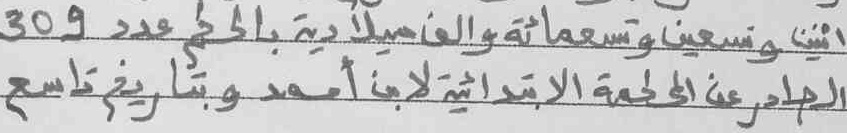 اثنين وتسعين وتسعمائة والف ميلادية بالحكم عدد 309
الصادر عن المحكمة الابتدائية لابن أحمد وبتاريخ تاسع